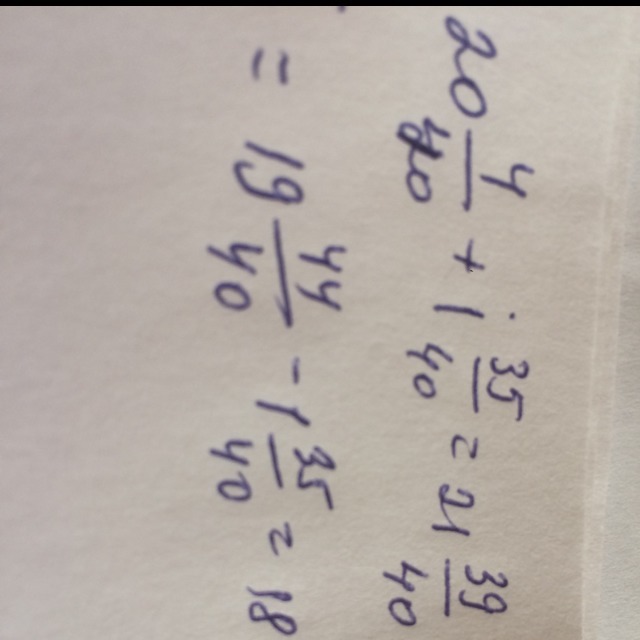 20 4/40 + 1 35/40 = 21 39/40
= 19 44/40 - 1 35/40 = 18